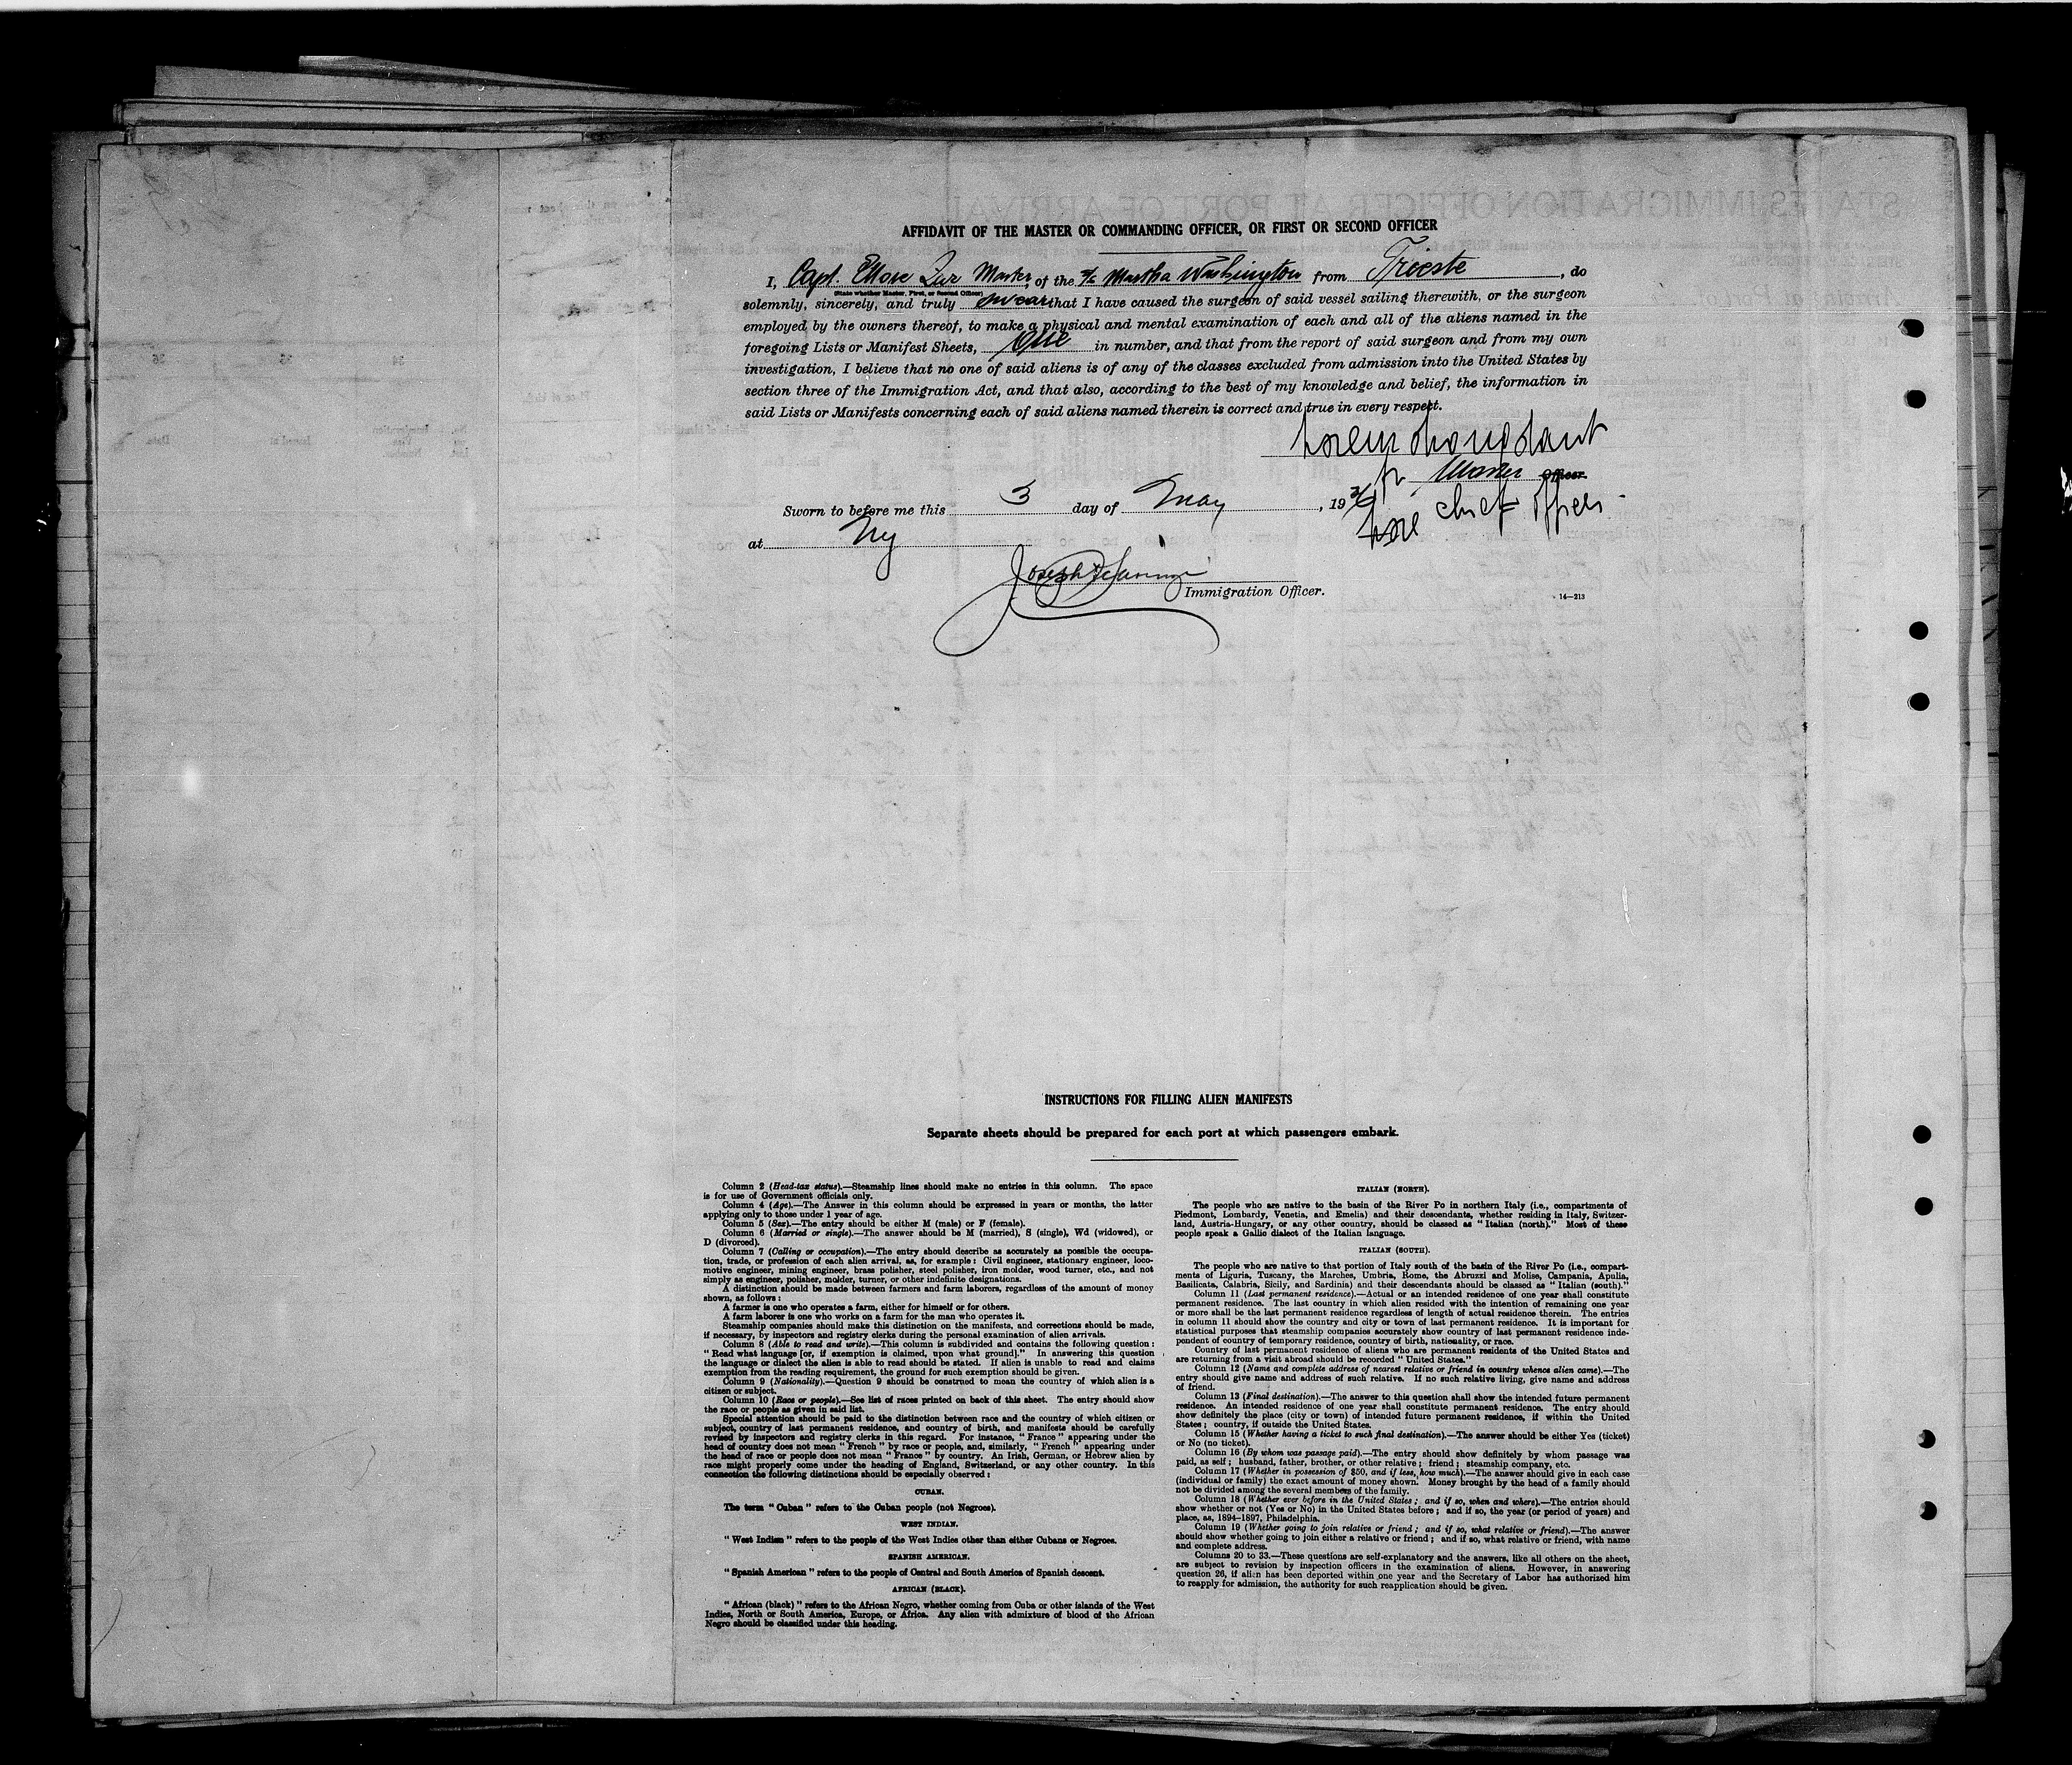 AFFIDAVIT OF THE MASTER OR COMMANDING OFFICER, OR FIRST OR SECOND OFFICER
I, Capt. Ettore Zar Master, of the S/S Martha Washington from Trieste, do
(State whether Master, First, or Second Officer)
solemnly, sincerely, and truly swear that I have caused the surgeon of said vessel sailing therewith, or the surgeon
employed by the owners thereof, to make a physical and mental examination of each and all of the aliens named in the
foregoing Lists or Manifest Sheets, One in number, and that from the report of said surgeon and from my own
investigation, I believe that no one of said aliens is of any of the classes excluded from admission into the United States by
section three of the Immigration Act, and that also, according to the best of my knowledge and belief, the information in
said Lists or Manifests concerning each of said aliens named therein is correct and true in every respect.
Master Officer.
Sworn to before me this 3 day of May, 19
chief officer
at Ny
Joseph
Immigration Officer.
16—213
INSTRUCTIONS FOR FILLING ALIEN MANIFESTS
Separate sheets should be prepared for each port at which passengers embark.
Column 2 (Head-tax status).—Steamship lines should make no entries in this column. The space
is for use of Government officials only.
Column 4 (Age).—The Answer in this column should be expressed in years or months, the latter
applying only to those under 1 year of age.
Column 5 (Sex).—The entry should be either M (male) or F (female).
Column 6 (Married or single).—The answer should be M (married), S (single), Wd (widowed), or
D (divorced).
Column 7 (Calling or occupation).—The entry should describe as accurately as possible the occupa-
tion, trade, or profession of each alien arrival, as, for example: Civil engineer, stationary engineer, loco-
motive engineer, mining engineer, brass polisher, steel polisher, iron molder, wood turner, etc., and not
simply as engineer, polisher, molder, turner, or other indefinite designations.
A distinction should be made between farmers and farm laborers, regardless of the amount of money
shown, as follows:
A farmer is one who operates a farm, either for himself or for others.
A farm laborer is one who works on a farm for the man who operates it.
Steamship companies should make this distinction on the manifests, and corrections should be made,
if necessary, by inspectors and registry clerks during the personal examination of alien arrivals.
Column 8 (Able to read and write).—This column is subdivided and contains the following question:
"Read what language [or, if exemption is claimed, upon what ground]." In answering this question
the language or dialect the alien is able to read should be stated. If alien is unable to read and claims
exemption from the reading requirement, the ground for such exemption should be given.
Column 9 (Nationality).—Question 9 should be construed to mean the country of which alien is a
citizen or subject.
Column 10 (Race or people).—See list of races printed on back of this sheet. The entry should show
the race or people as given in said list.
Special attention should be paid to the distinction between race and the country of which citizen or
subject, country of last permanent residence, and country of birth, and manifests should be carefully
revised by inspectors and registry clerks in this regard. For instance, "France" appearing under the
head of country does not mean "French" by race or people, and, similarly, "French" appearing under
the head of race or people does not mean "France" by country. An Irish, German, or Hebrew alien by
race might properly come under the heading of England, Switzerland, or any other country. In this
connection the following distinctions should be especially observed:
CUBAN.
The term "Cuban" refers to the Cuban people (not Negroes).
WEST INDIAN.
"West Indian" refers to the people of the West Indies other than either Cubans or Negroes.
SPANISH AMERICAN.
"Spanish American" refers to the people of Central and South America of Spanish descent.
AFRICAN (BLACK).
"African (black)" refers to the African Negro, whether coming from Cuba or other islands of the West
Indies, North or South America, Europe, or Africa. Any alien with admixture of blood of the African
Negro should be classified under this heading.
ITALIAN (NORTH).
The people who are native to the basin of the River Po in northern Italy (i.e., compartments of
Piedmont, Lombardy, Venetia, and Emelia) and their descendants, whether residing in Italy, Switzer-
land, Austria-Hungary, or any other country, should be classed as "Italian (north)." Most of these
people speak a Gallic dialect of the Italian language.
ITALIAN (SOUTH).
The people who are native to that portion of Italy south of the basin of the River Po (i.e., compart-
ments of Liguria, Tuscany, the Marches, Umbria, Rome, the Abruzzi and Molise, Campania, Apulia,
Basilicata, Calabria, Sicily, and Sardinia) and their descendants should be classed as "Italian (south)."
Column 11 (Last permanent residence).—Actual or an intended residence of one year shall constitute
permanent residence. The last country in which alien resided with the intention of remaining one year
or more shall be the last permanent residence regardless of length of actual residence therein. The entries
in column 11 should show the country and city or town of last permanent residence. It is important for
statistical purposes that steamship companies accurately show country of last permanent residence inde-
pendent of country of temporary residence, country of birth, nationality, or race.
Country of last permanent residence of aliens who are permanent residents of the United States and
are returning from a visit abroad should be recorded "United States."
Column 12 (Name and complete address of nearest relative or friend in country whence alien came).—The
entry should give name and address of such relative. If no such relative living, give name and address
of friend.
Column 13 (Final destination).—The answer to this question shall show the intended future permanent
residence. An intended residence of one year shall constitute permanent residence. The entry should
show definitely the place (city or town) of intended future permanent residence, if within the United
States; country, if outside the United States.
Column 15 (Whether having a ticket to such final destination).—The answer should be either Yes (ticket)
or No (no ticket).
Column 16 (By whom was passage paid).—The entry should show definitely by whom passage was
paid, as self; husband, father, brother, or other relative; friend; steamship company, etc.
Column 17 (Whether in possession of $50, and if less, how much).—The answer should give in each case
(individual or family) the exact amount of money shown. Money brought by the head of a family should
not be divided among the several members of the family.
Column 18 (Whether ever before in the United States; and if so, when and where).—The entries should
show whether or not (Yes or No) in the United States before; and if so, the year (or period of years) and
place, as, 1894-1897, Philadelphia.
Column 19 (Whether going to join relative or friend; and if so, what relative or friend).—The answer
should show whether going to join either a relative or friend; and if so, what relative or friend, with name
and complete address.
Columns 20 to 33.—These questions are self-explanatory and the answers, like all others on the sheet,
are subject to revision by inspection officers in the examination of aliens. However, in answering
question 26, if alien has been deported within one year and the Secretary of Labor has authorized him
to reapply for admission, the authority for such reapplication should be given.